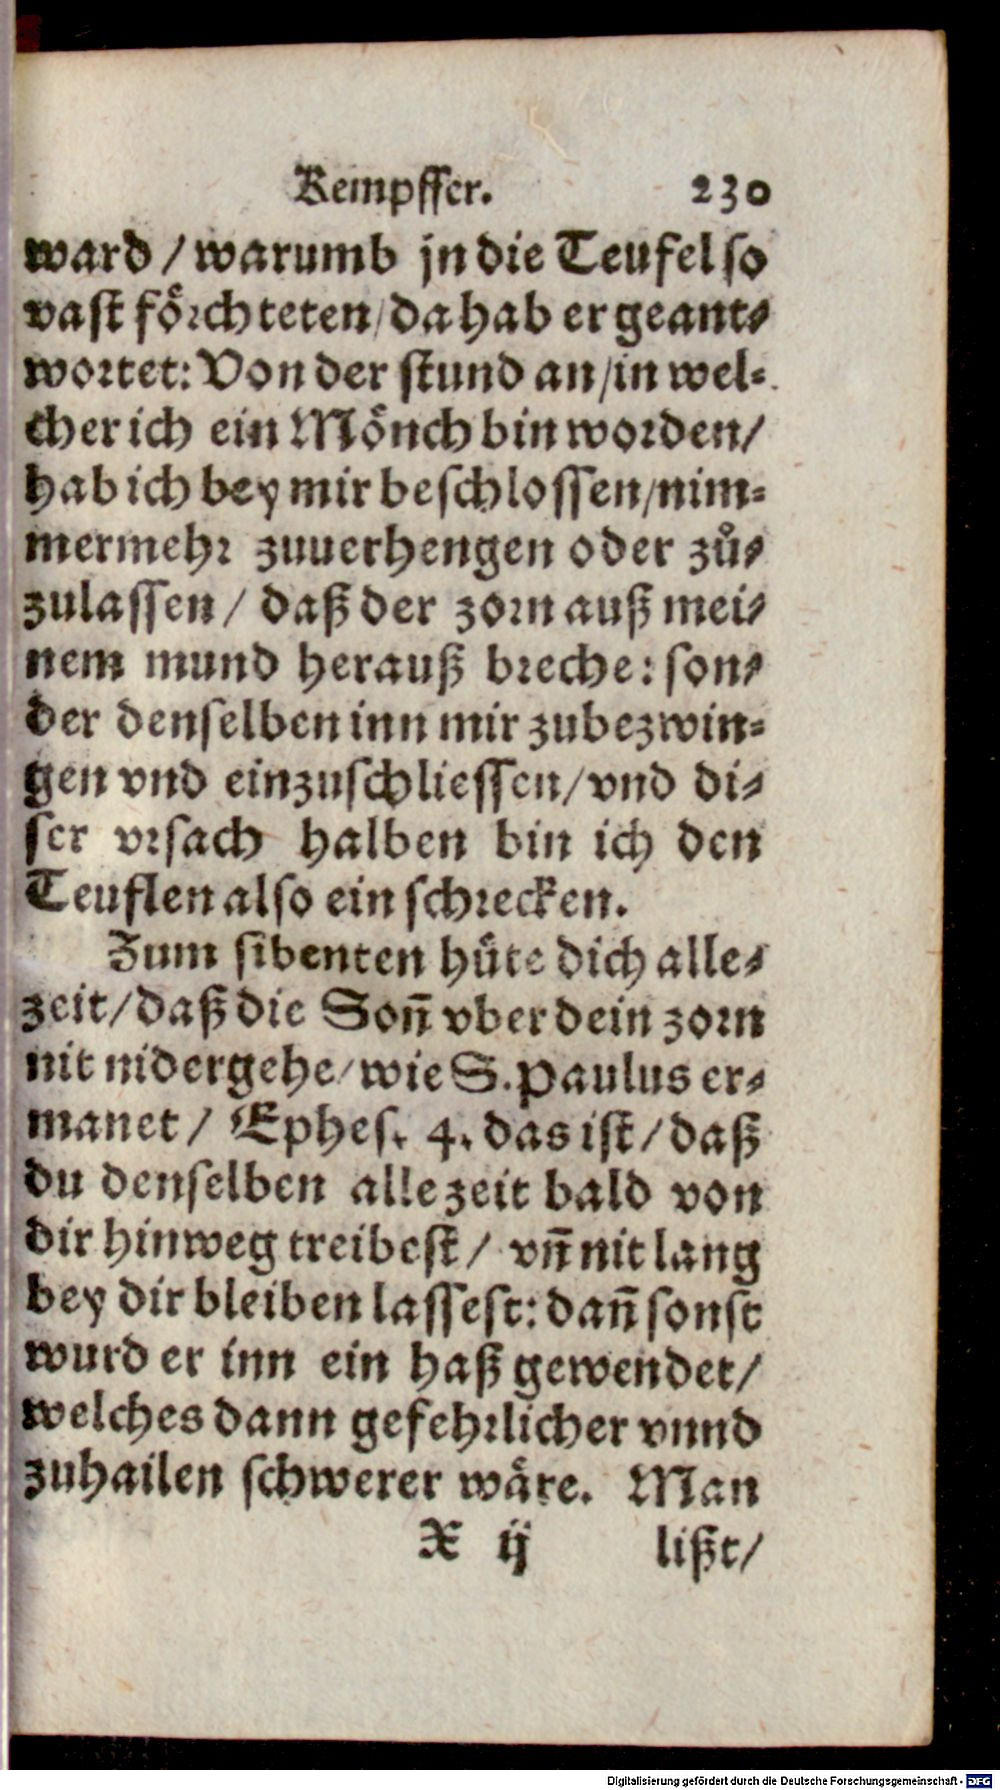 Kempffer. 230
ward / warumb jn die Teufel so
vast foͤrchteten / da hab er geant-
wortet: Von der stund an / in wel-
cher ich ein Moͤnch bin worden /
hab ich bey mir beschlossen / nim-
mermehr zuuerhengen oder zuͦ-
zulassen / daß der zorn auß mei-
nem mund herauß breche: son-
der denselben inn mir zubezwin-
gen vnd einzuschliessen / vnd di-
ser vrsach halben bin ich den
Teuflen also ein schrecken.
Zum sibenten huͤte dich alle-
zeit / daß die Son̄ vber dein zorn
nit nidergehe / wie S. Paulus er-
manet / Ephes. 4. das ist / daß
du denselben allezeit bald von
dir hinweg treibest / vn̄ nit lang
bey dir bleiben lassest: dan̄ sonst
wurd er inn ein haß gewendet /
welches dann gefehrlicher vnnd
zuhailen schwerer waͤre. Man
X ij lißt /
Digitalisierung gefördert durch die Deutsche Forschungsgemeinschaft - DFG